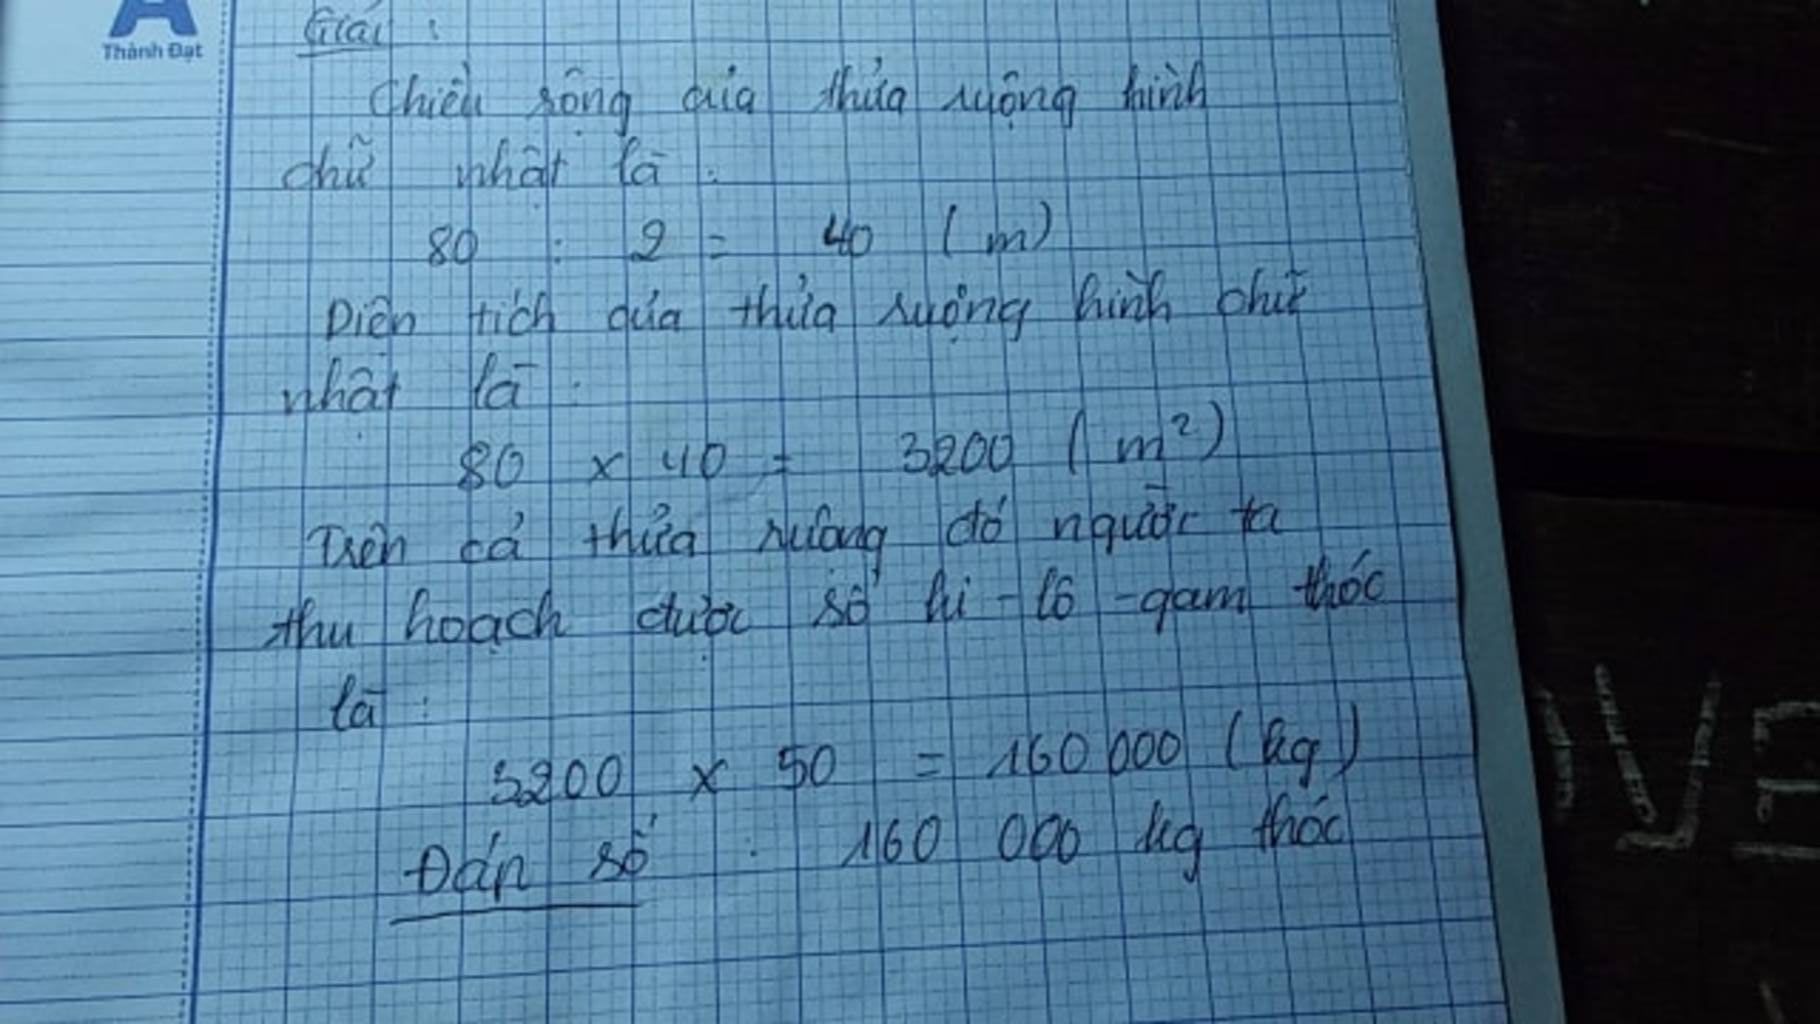 Thành Đạt
Giải :
Chiều rộng của thửa ruộng hình
chữ nhật là :
80 : 2 = 40 (m)
Diện tích của thửa ruộng hình chữ
nhật là :
80 x 40 = 3200 (m²)
Trên cả thửa ruộng đó người ta
thu hoạch được số ki-lô-gam thóc
là :
3200 x 50 = 160 000 (kg)
Đáp số : 160 000 kg thóc